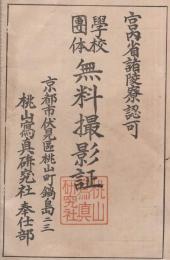 宮内省諸陵寮認可
學校
團体
無料撮影証
京都市伏見區桃山町鍋島二三
桃山寫真研究社 奉仕部
桃山
寫真
研究社